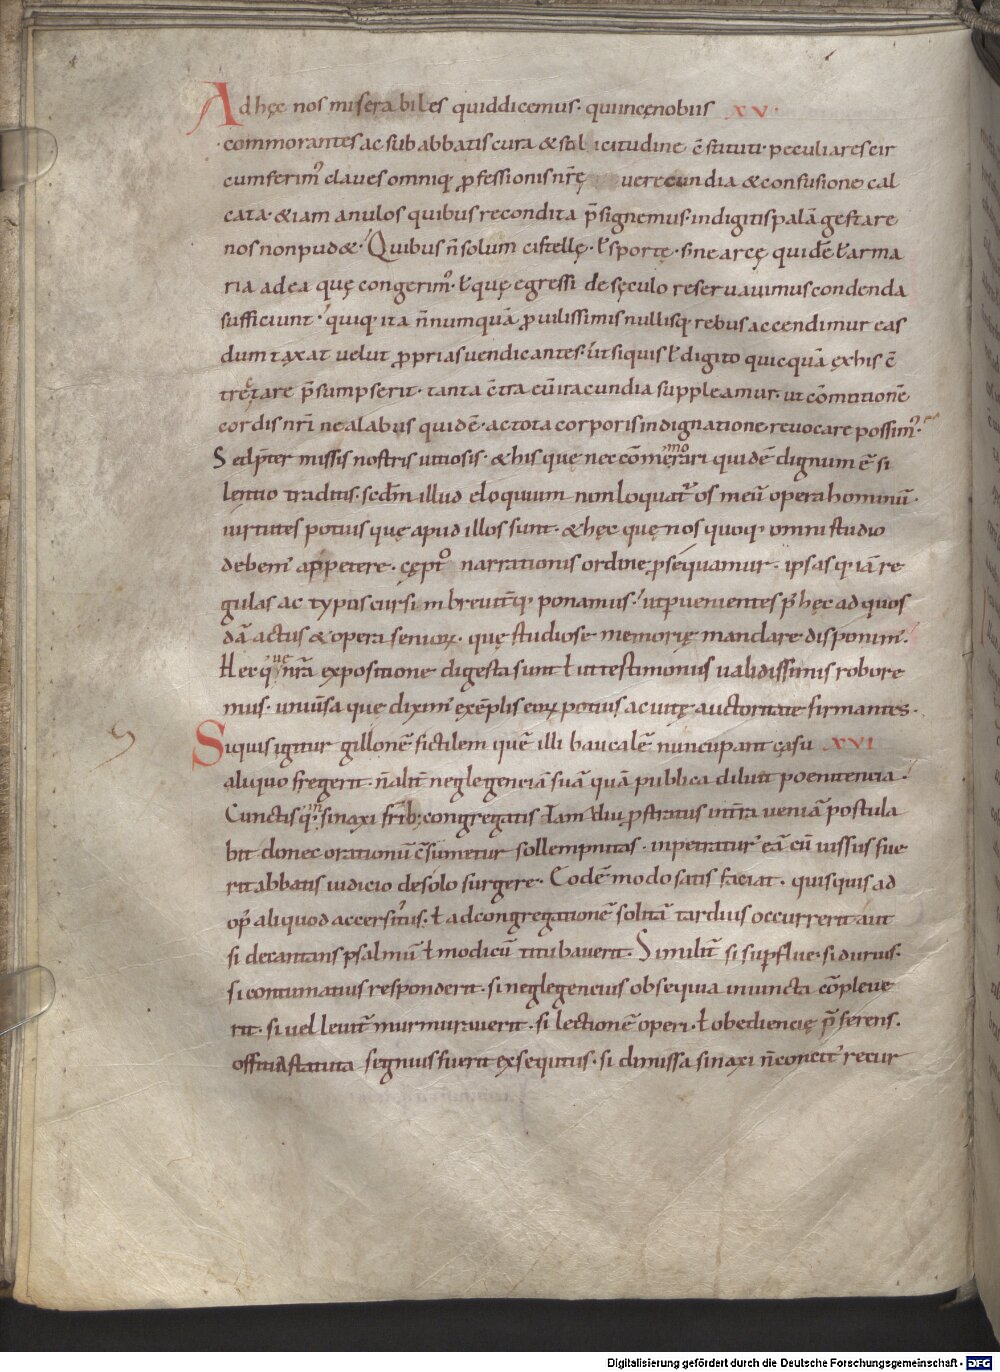 Ad hęc nos miserabiles quid dicemus· qui in cęnobiis XV·
commorantes ac sub abbatis cura & sollicitudine c̄stituti· peculiares cir
cumferim᾽ claves omniq; ꝓfessionis nr̄ę verecundia & confusione cal
cata· & iam anulos quibus recondita p̄signemus· in digitis palā gestare
nos non pud&· Quibus n̄ solum cistellę· ł sportę· sine arcę quidē ł arma
ria ad ea quę congerim᾽· ł quę egressi de sęculo reservavimus condenda
sufficiunt· quiq; ita n̄numquā ꝓ vilissimis nullisq; rebus accendimur eas
dumtaxat velut ꝓprias vendicantes· ut si quis ł digito quicquā ęx his c̄
trectare p̄sumpserit· tanta c̄tra cū iracundia suppleamur· ut cōmtitionē
cordis nr̄i ne a labiis quidē· ac tota corporis indignatione revocare possim᾽·
Sed p̄ter missis nostris vitiosis· & his quę nec cōmemorari quidē dignum ē si
lentio traditis· scdm̄ illud eloquium non loquat᾽ os meū opera hominū·
virtutes potius quę apud illos sunt· & hęc quę nos quoq; omni studio
debem᾽ appetere· cępto narrationis ordine p̄sequamur· ipsasq; iā re
gulas ac typos cursim breviterq; ponamus· ut pvenientes p᾽ hęc ad quos
dā actus & opera senioꝝ· quę studiose memorię mandare disponim᾽·
Hec quę nr̄a expositione digesta sunt ł ut testimoniis validissimis robore
mus· univ̄sa quę dixim᾽ exēplis eoꝝ potius ac vitę auctoritate firmantes·
Si quis igitur gillonē fictilem quē illi baucalē nuncupant cąsu XVI
aliquo fregerit· n̄ alit̄ neglegenciā suā quā publica diluit poenitencia·
Cunctisq; in sinaxi frīb; congregatis tam diu ꝓstratus in tr̄a veniā postula
bit donec orationū c̄sumetur sollempnitas· inpetratur᾽ eā cū iussus fue
rit abbatis iudicio de solo surgere· Eodē modo satis faciat· quisquis ad
op᾽ aliquod accersitus· ł ad congregationē solitā tardius occurrerit aut
si decantans psalmū ł modicū titubaverit· Similit̄ si supflue· si durius·
si contumatius responderit· si neglegencius obsequia iniuncta cōpleve
rit· si vel levit̄ murmuraverit· si lectionē operi· ł obediencię p̄ferens·
offitia statuta segnius fuerit exsequtus· si dimissa sinaxi n̄ concit᾽ recur